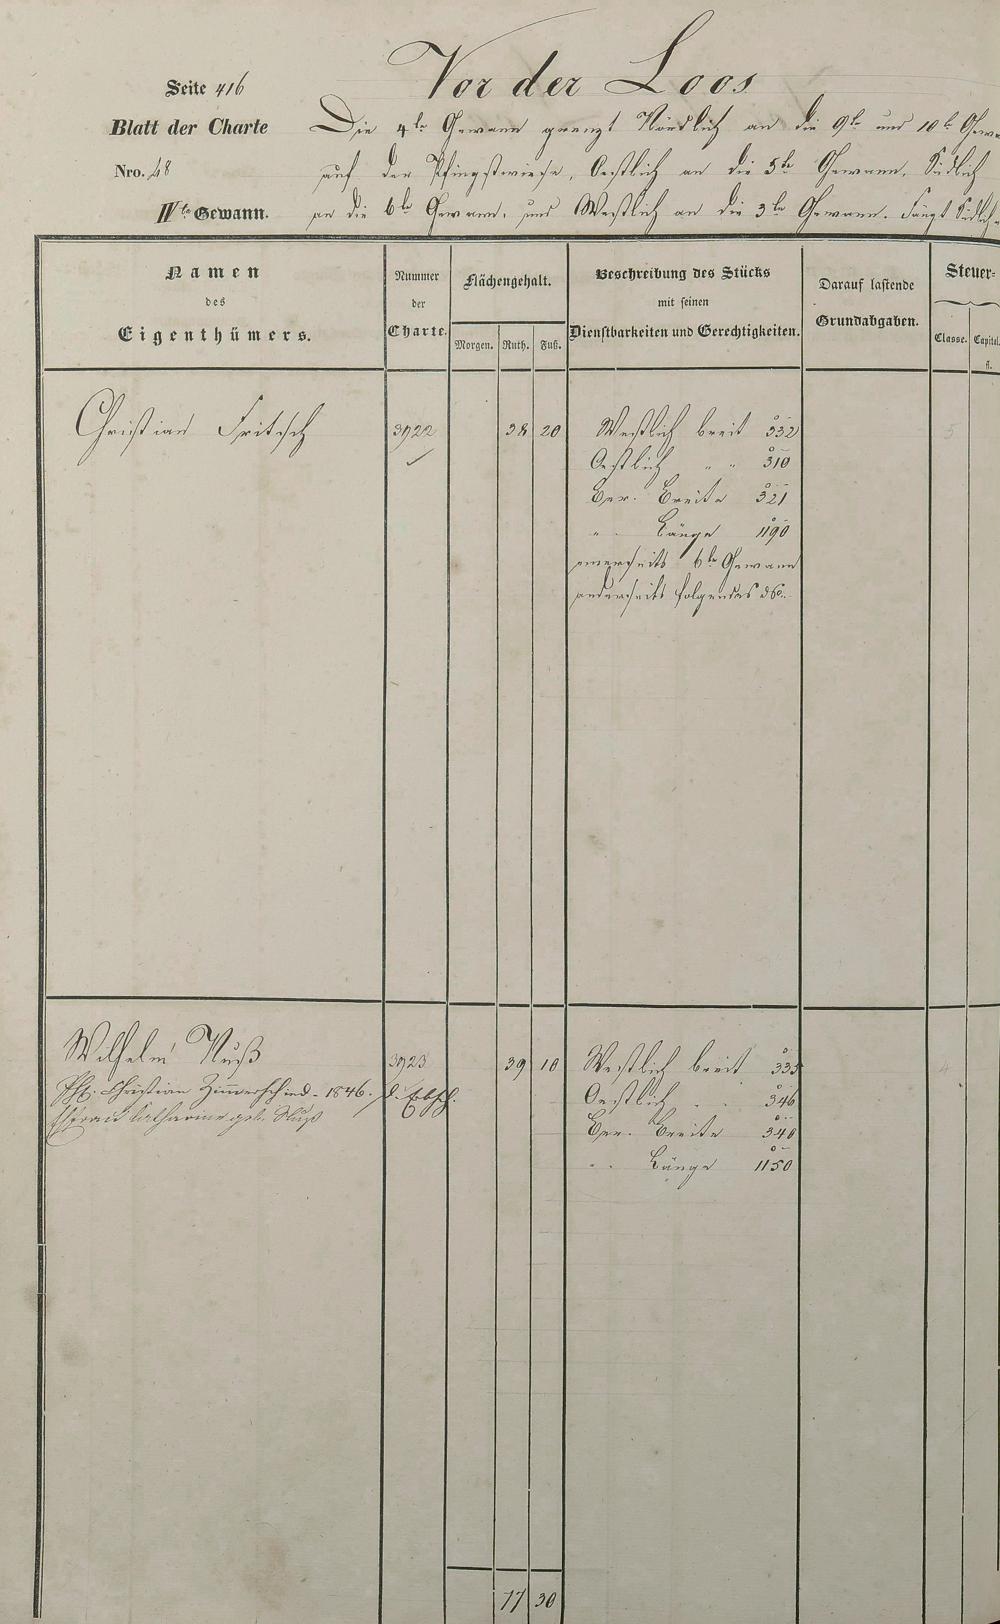 Vor der Loos
Seite 416
Blatt der Charte
Nro. 48
IVte Gewann.
Die 4te Gewann grenzt Nördlich an die 9te und 10te Gewa
auf der Pfingstwiese, Oestlich an die 5te Gewann, Südlich
an die 6te Gewann, und Westlich an die 3te Gewann. Fängt Südlich
Namen
des
Eigenthümers.
Nummer
der
Charte.
Flächengehalt.
Morgen. Ruth. Fuß.
Beschreibung des Stücks
mit seinen
Dienstbarkeiten und Gerechtigkeiten.
Darauf lastende
Grundabgaben.
Steuer=
Classe. Capital.
fl.
Christian Fritsch 3922 38 20 Westlich breit 332 5
Oestlich " " 310
Ber. Breite 321
" Länge 1190
einerseits 6te Gewann
anderseits folgendes
Wilhelm Nuß 3923 39 10 Westlich breit 335 4
Christian Zimmerschied - 1846.
Ehefrau Catharine geb. Nuß
Oestlich " " 346
Ber. Breite 340
" Länge 1150
77 30